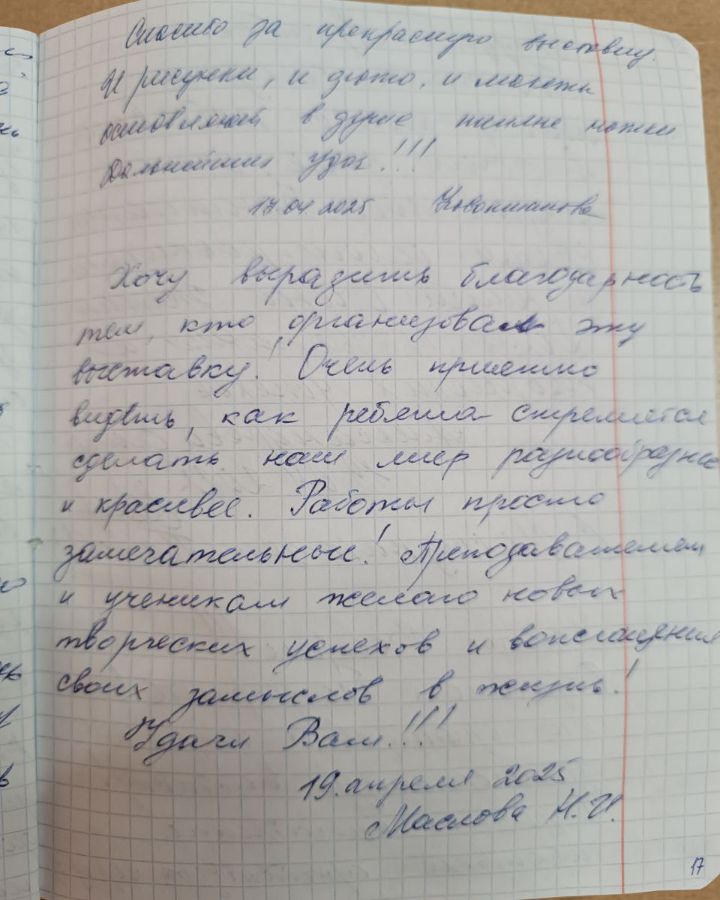 Спасибо за прекрасную выставку.
И рисунки, и фото, и макеты
в душе
Дальнейших удач!!!
17.04.2025
Хочу выразить благодарность
тем, кто организовал эту
выставку! Очень приятно
видеть, как ребята стремятся
сделать наш мир разнообразнее
и красивее. Работы просто
замечательные! Преподавателям
и ученикам желаю новых
творческих успехов и воплощения
своих замыслов в жизнь!
Удачи Вам!!!
19 апреля 2025
Маслова Н.И.
17